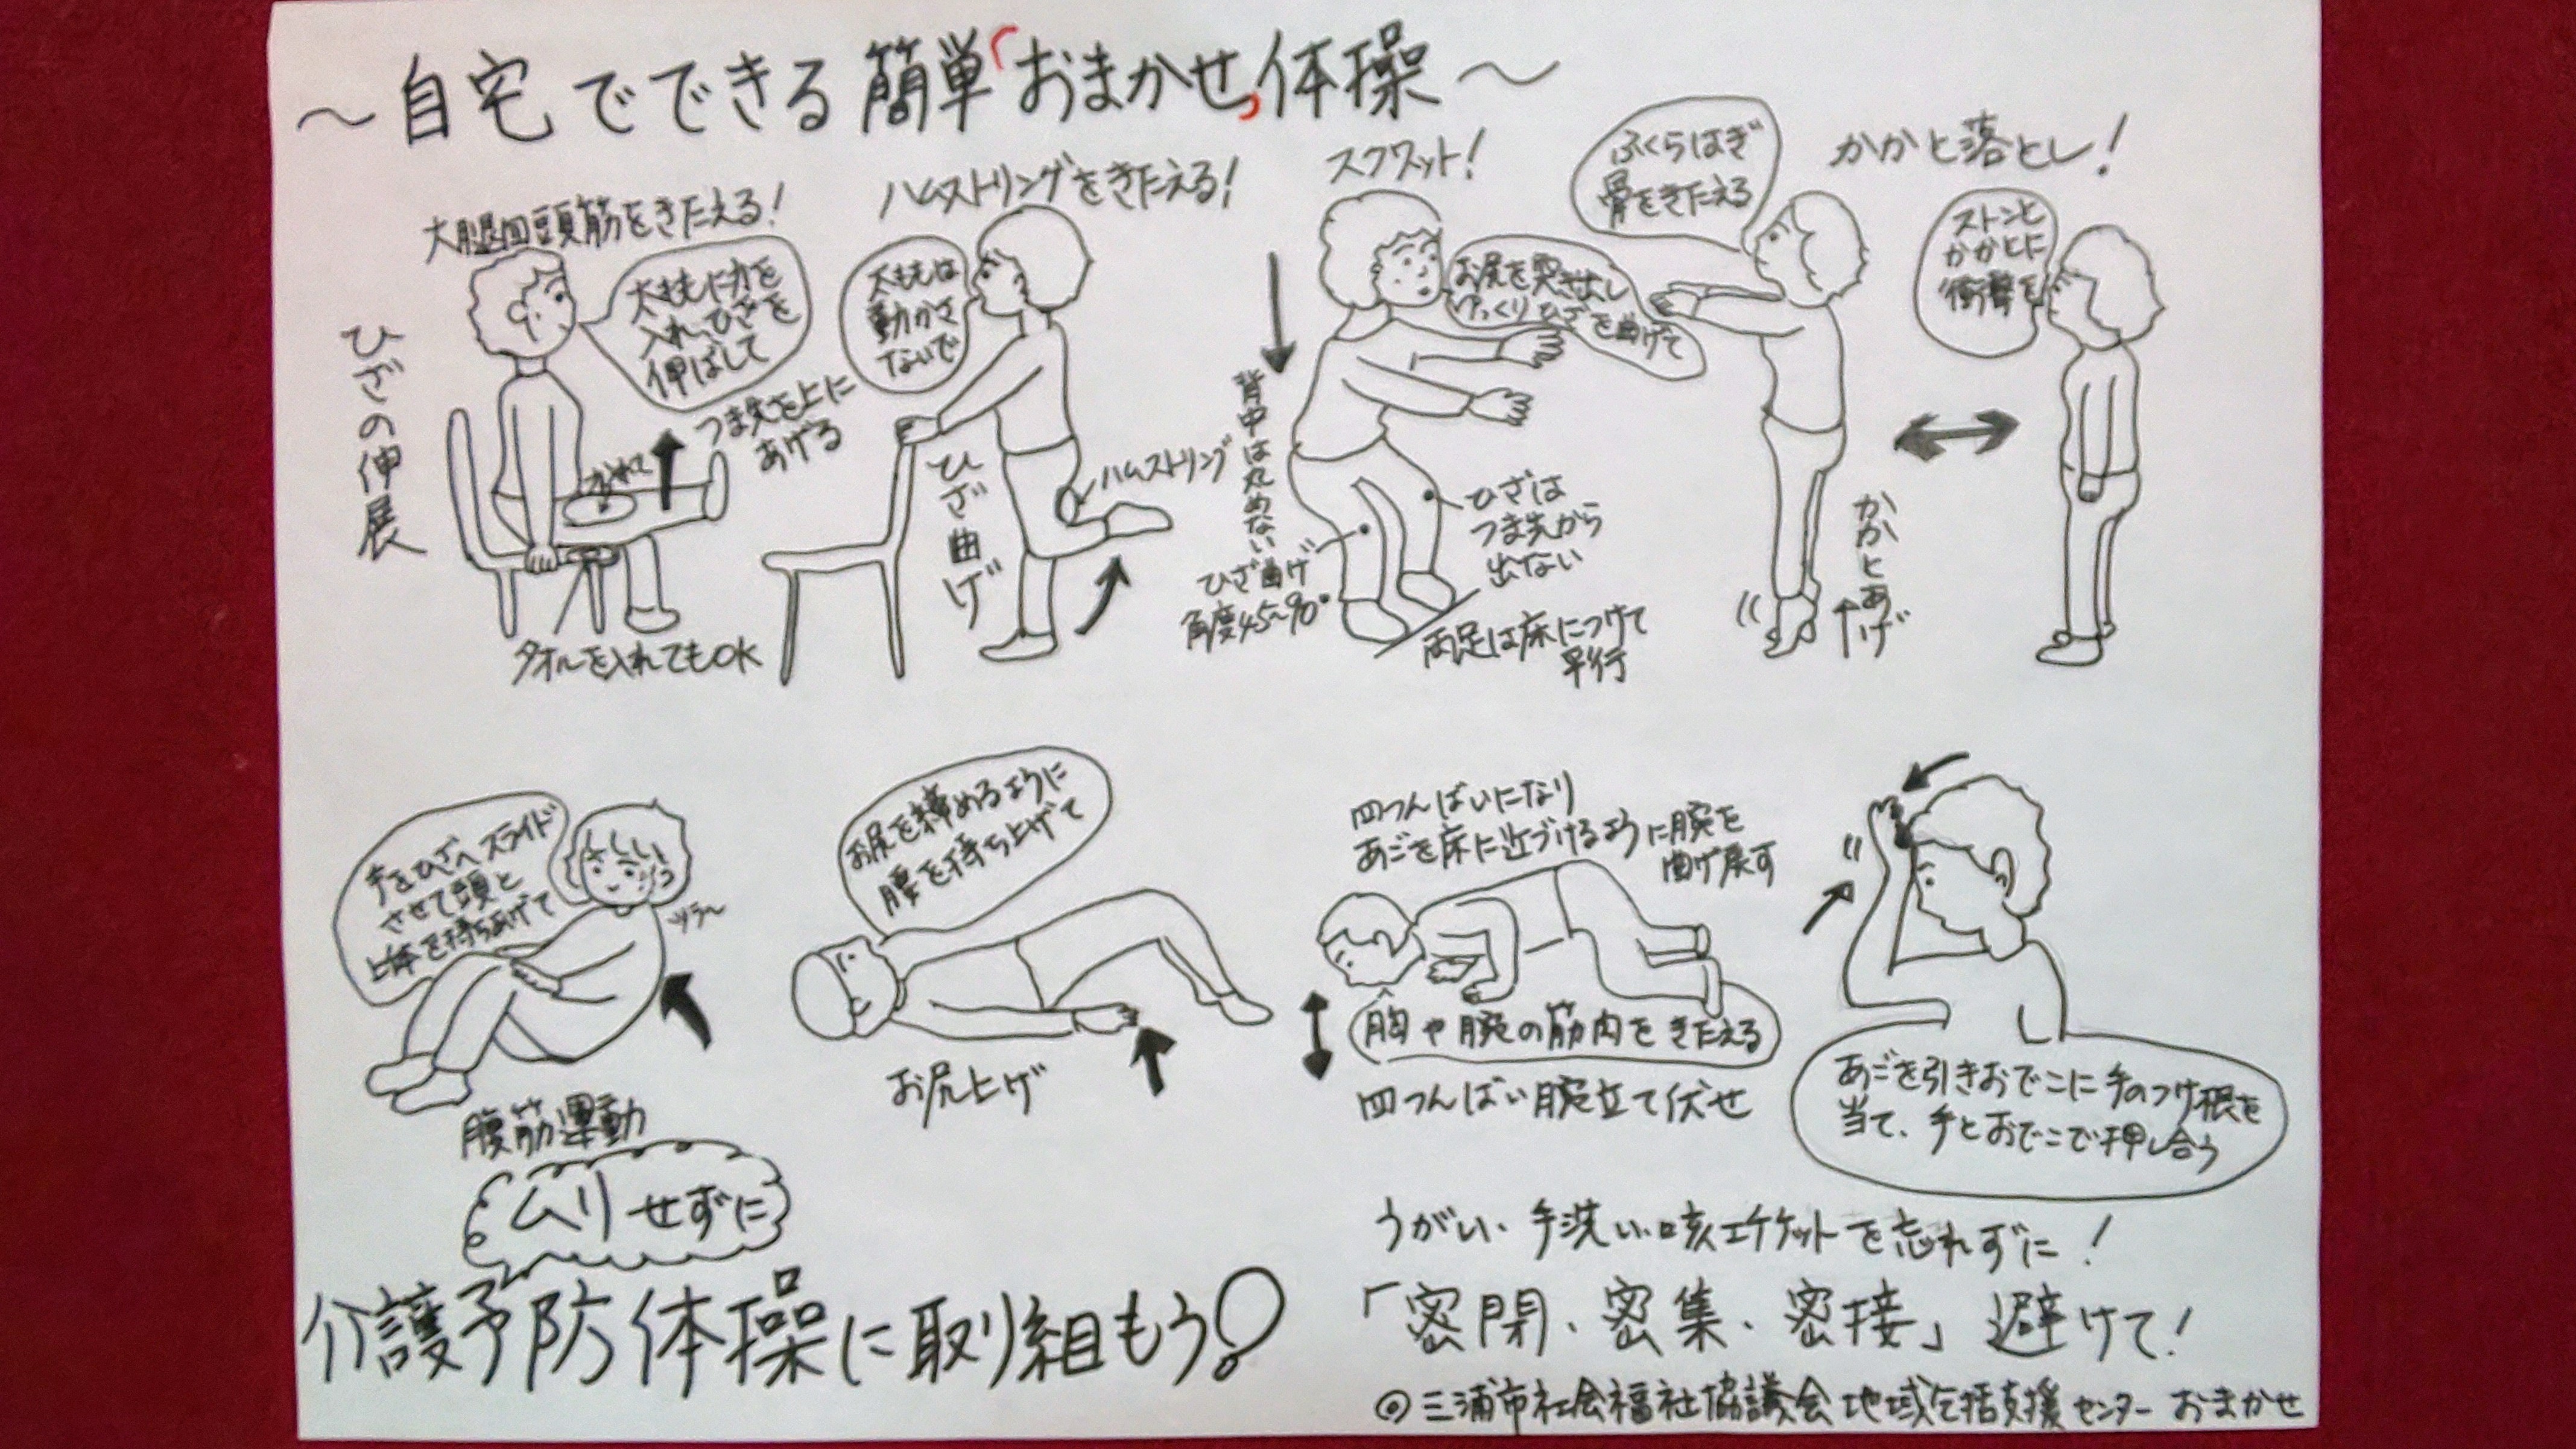 ～自宅でできる簡単「おまかせ」体操～
大腿四頭筋をきたえる!
ひざの伸展
太ももに力を
入れ、ひざを
伸ばして
つま先を上に
あげる
タオルを入れてもOK
ハムストリングをきたえる!
太ももは
動かさ
ないで
ひざ曲げ
ハムストリング
スクワット!
お尻を突き出し
ゆっくりひざを曲げて
背中は丸めない
ひざ曲げ
角度45~90°
ひざは
つま先から
出ない
両足は床につけて
平行
ふくらはぎ
骨をきたえる
かかと落とし!
かかとあげ
ストンと
かかとに
衝撃を
手をひざへスライド
させて頭と
上体を持ちあげて
腹筋運動
お尻を締めるように
腰を持ち上げて
お尻上げ
四つんばいになり
あごを床に近づけるように腕を
曲げ戻す
胸や腕の筋肉をきたえる
四つんばい腕立て伏せ
あごを引きおでこに手のつけ根を
当て、手とおでこで押し合う
ムリせずに
介護予防体操に取り組もう!
うがい、手洗い、咳エチケットを忘れずに!
「密閉、密集、密接」避けて!
◎三浦市社会福祉協議会 地域包括支援センター おまかせ